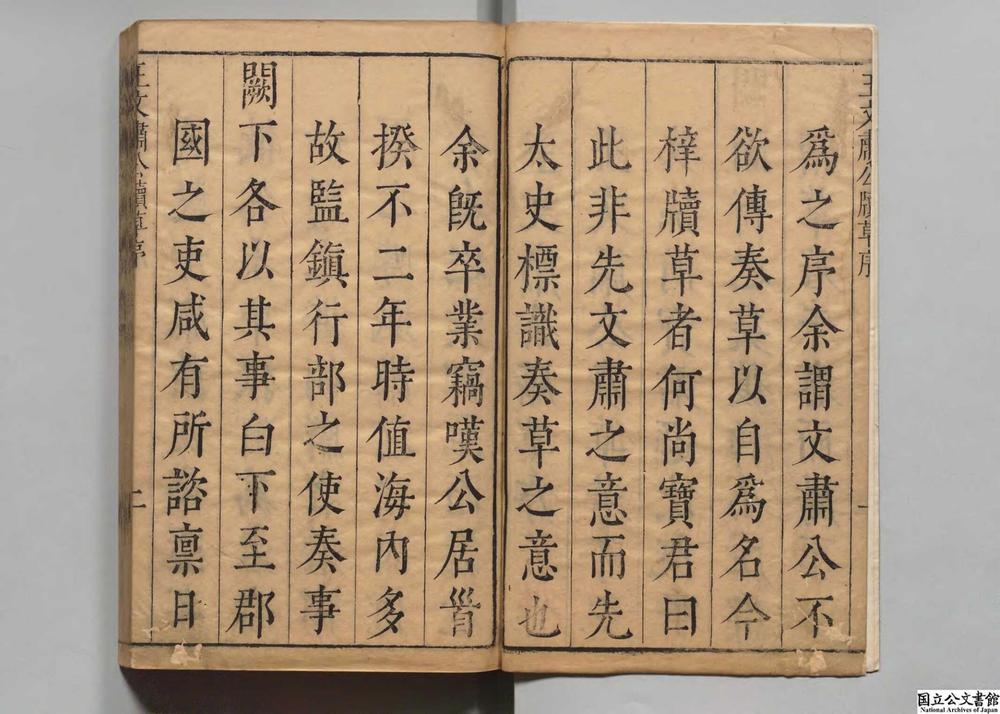 王文肅公牘草序
一
爲之序余謂文肅公不
欲傳奏草以自爲名今
梓牘草者何尚寶君曰
此非先文肅之意而先
太史標識奏草之意也
余旣卒業竊嘆公居首
揆不二年時値海內多
故監鎭行部之使奏事
闕下各以其事白下至郡
國之吏咸有所諮稟日
王文肅公牘草序
二
国立公文書館
National Archives of Japan